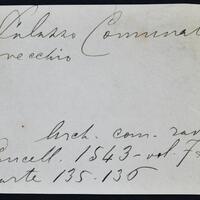 Palazzo Comunal
vecchio
Arch. com. rav
Cancell. 1543 - vol. 7
carte 135. 136